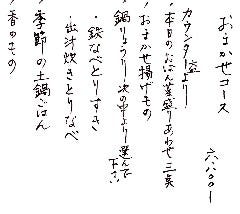 おまかせコース 六、八〇〇ー
カウンター盆より
・本日のおばん菜盛りあわせ三点
・おまかせ揚げもの
・鍋りょうり 次の中より選んで下さい
・鉄なべとりすき
出汁炊きとりなべ
・季節の土鍋ごはん
・香のもの